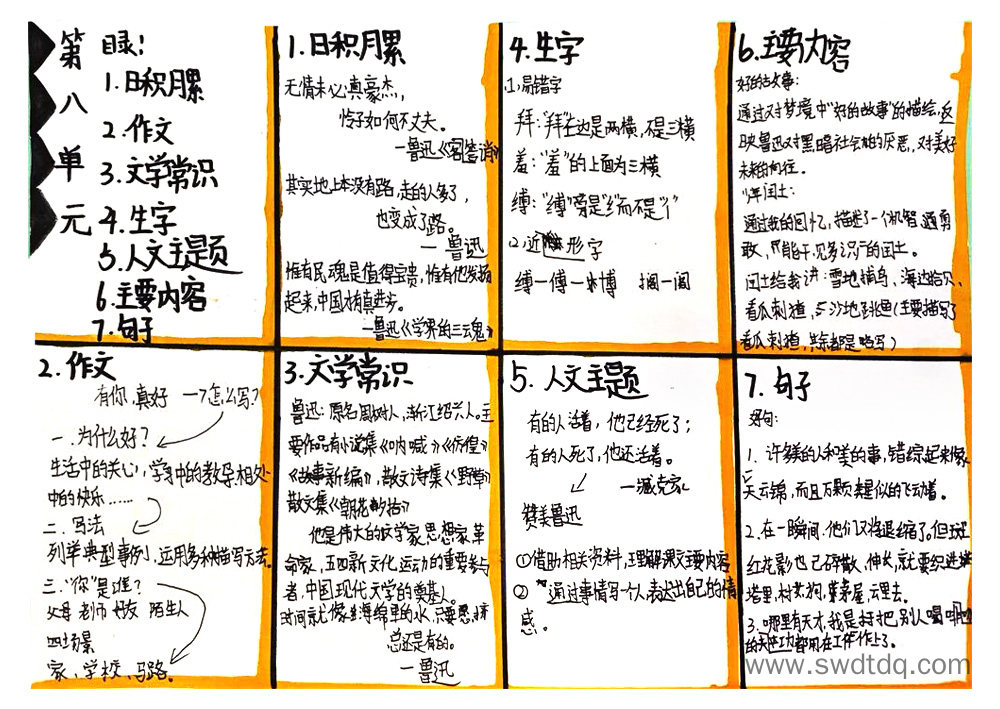 第八单元
目录:
1.日积月累
2.作文
3.文学常识
4.生字
5.人文主题
6.主要内容
7.句子
1.日积月累
无情未必真豪杰,
怜子如何不丈夫。
—鲁迅《答客诮》
其实地上本没有路,走的人多了,
也变成了路。
—鲁迅
惟有民魂是值得宝贵,惟有他发扬
起来,中国才有真进步。
—鲁迅《学界的三魂》
4.生字
1.易错字
拜:“拜”右边是四横,不是三横
羞:“羞”的上面为三横
缚:“缚”旁是“纟”而不是“亻”
2.近形字
缚—傅—博 搁—阁
6.主要内容
好的故事:
通过对梦境中“好的故事”的描绘,反
映鲁迅对黑暗社会的厌恶,对美好
未来的向往。
少年闰土:
通过我的回忆,描述了一个机智、勇
敢,能干、见多识广的闰土。
闰土给我讲:雪地捕鸟、海边拾贝、
看瓜刺猹,与沙地跳鱼(主要描写了
看瓜刺猹,其余都是略写)
2.作文
有你,真好 —?怎么写?
一.为什么好?
生活中的关心,学习中的教导,相处
中的快乐……
二.写法
列举典型事例、运用多种描写方法。
三.“你”是谁?
父母 老师 好友 陌生人
四.场景
家,学校,马路。
3.文学常识
鲁迅:原名周树人,浙江绍兴人。主
要作品有小说集《呐喊》《彷徨》
《故事新编》,散文诗集《野草》
散文集《朝花夕拾》
他是伟大的文学家思想家革
命家,五四新文化运动的重要参与
者,中国现代文学的奠基人。
时间就像海绵里的水,只要愿挤
总还是有的。
—鲁迅
5.人文主题
有的人活着,他已经死了;
有的人死了,他还活着。
—臧克家
赞美鲁迅
①借助相关资料,理解课文主要内容
②通过事情写一个人,表达出自己的情
感。
7.句子
好句:
1.许多美的人和美的事,错综起来像
一天云锦,而且万颗奔星似的飞动着。
2.在一瞬间,他们又将退缩了。但斑
红花影也已碎散,伸长,就要织进
塔里,村女,狗,茅屋,云里去。
3.哪里有天才,我是把别人喝咖啡
的功夫都用在工作上了。
www.swdtdq.com